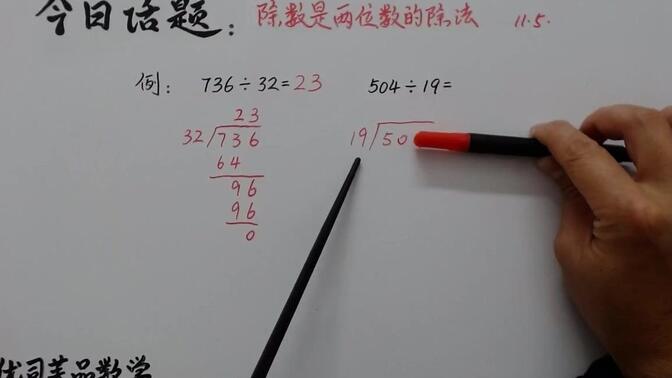 今日话题：除数是两位数的除法 11.5.
例： 736÷32=23 504÷19=
23
32 736 19 50
64
96
96
0
优司芊品数学